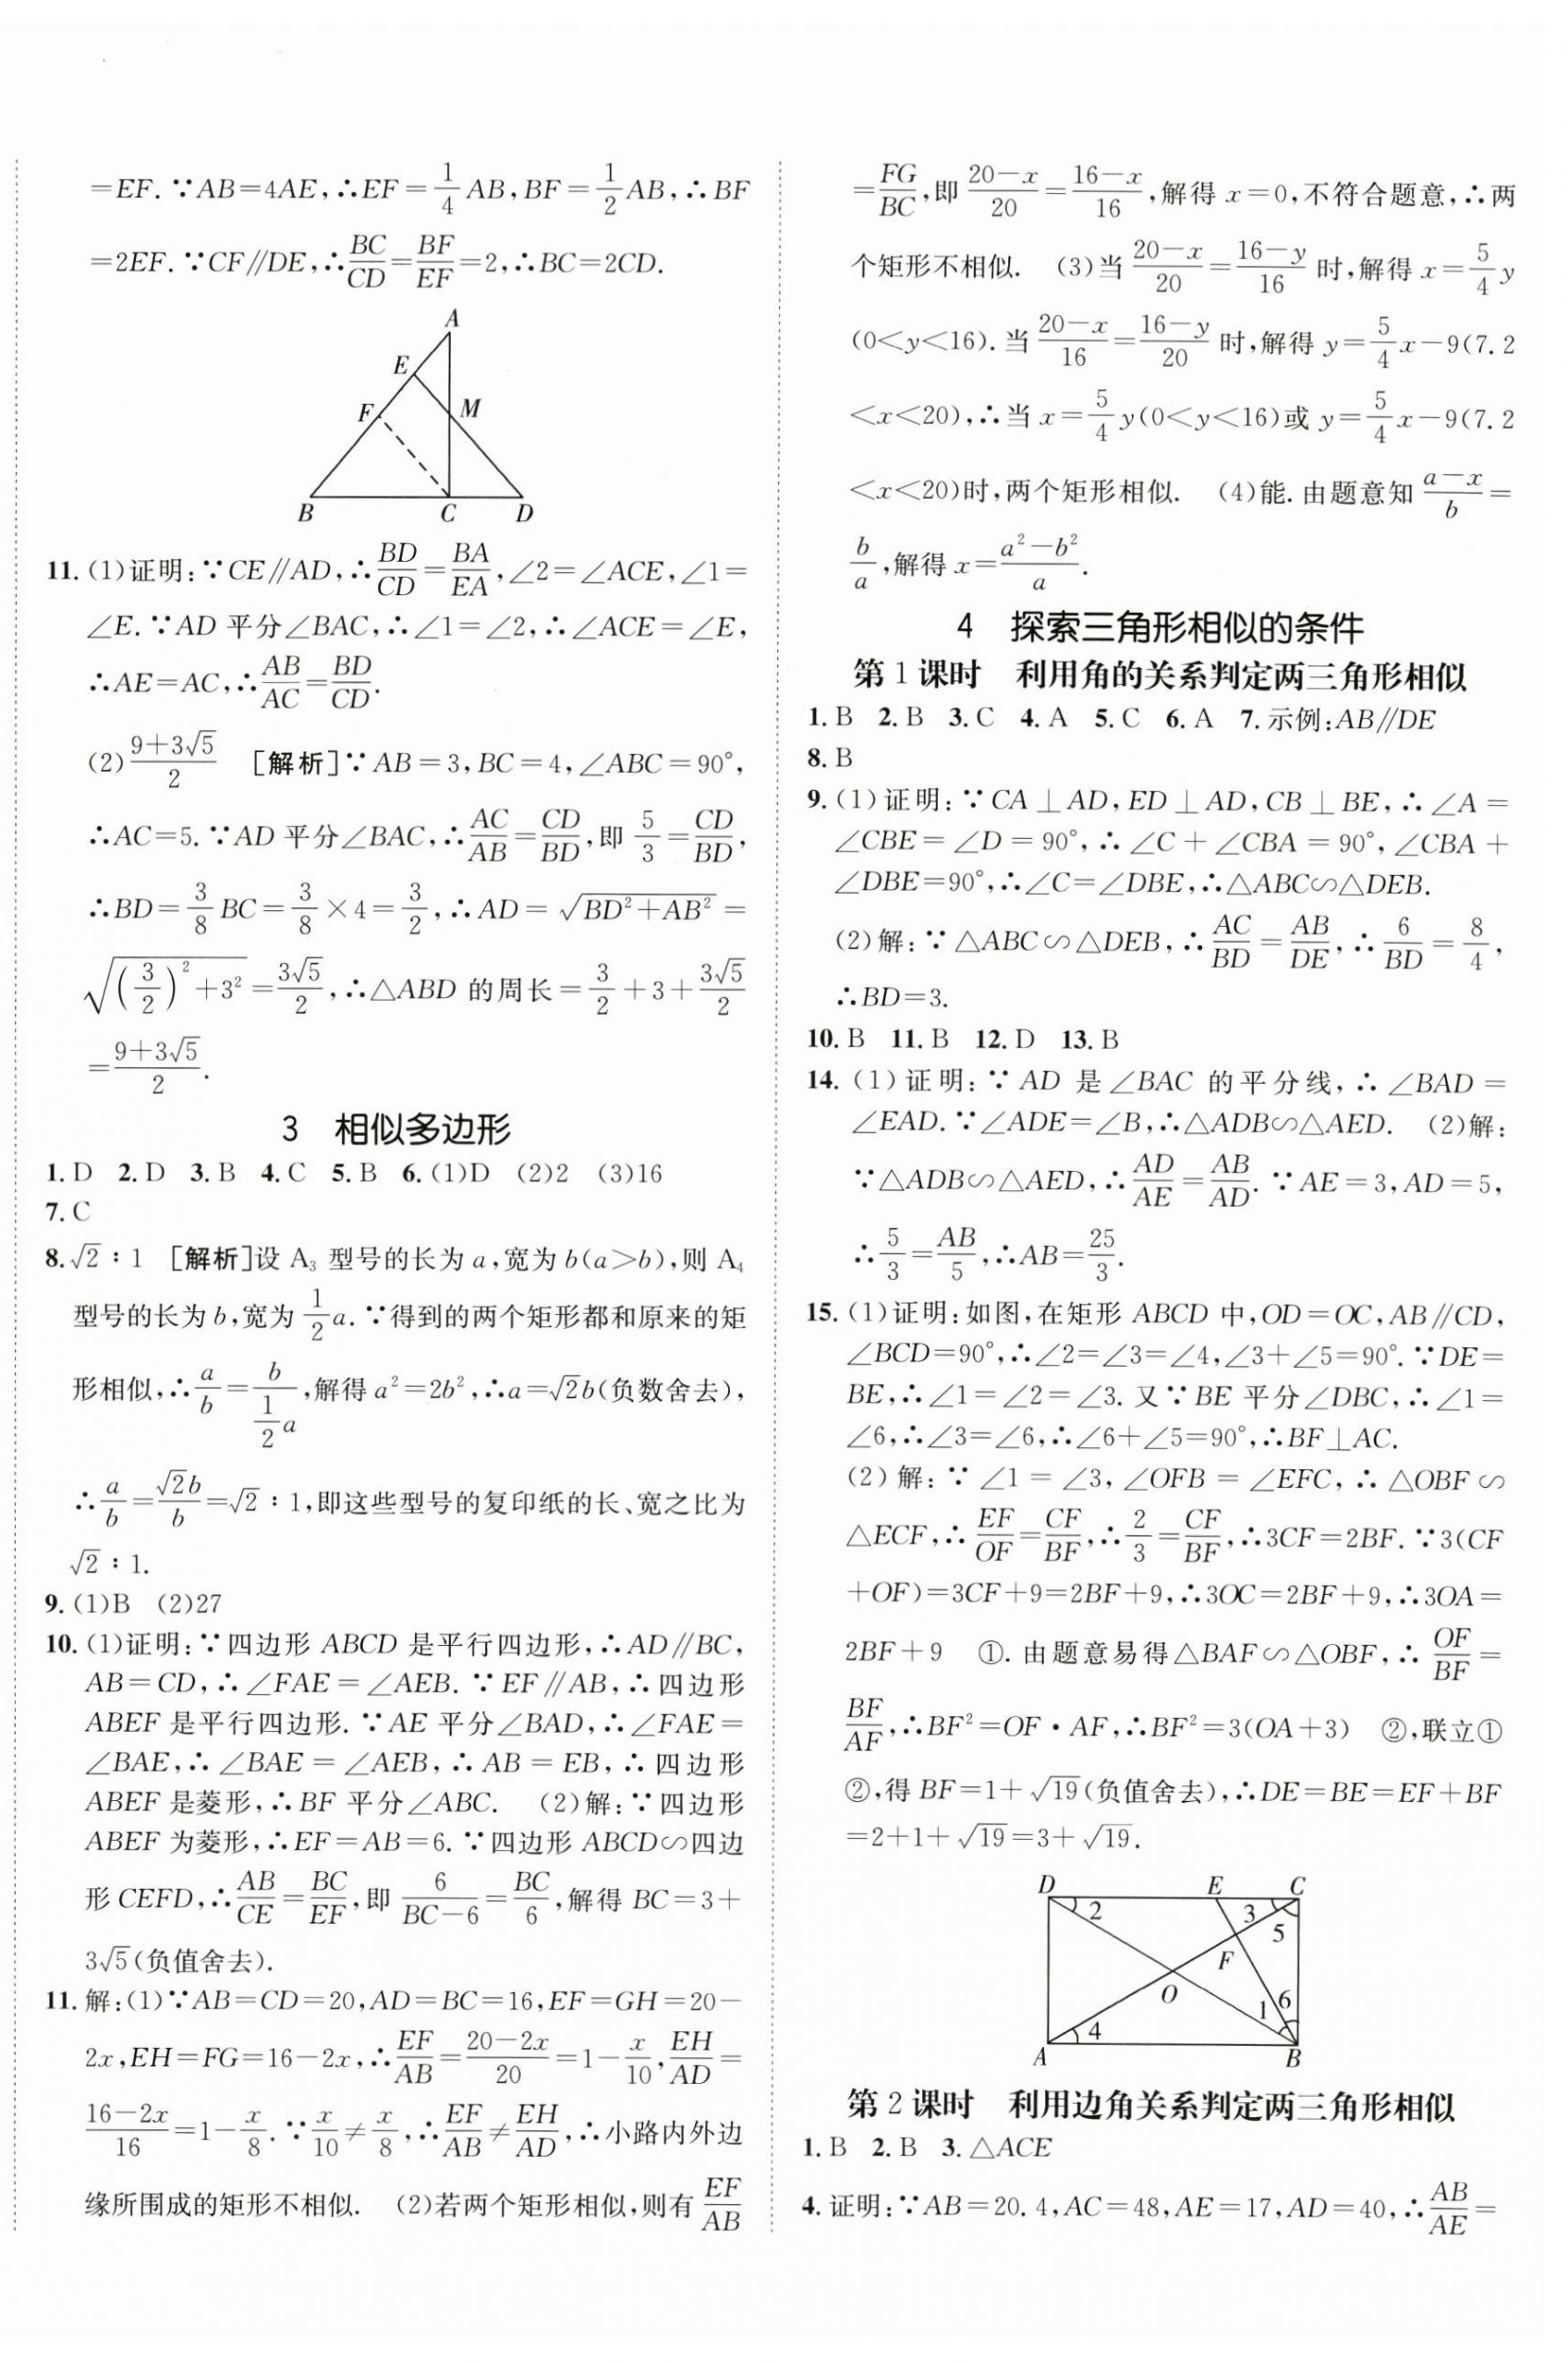 =EF. ∵AB=4AE,∴EF=1/4 AB,BF=1/2 AB,∴BF
=2EF. ∵CF∥DE,∴BC/CD=BF/EF=2,∴BC=2CD.
A
E
F
M
B
C
D
11. (1)证明:∵CE∥AD,∴BD/CD=BA/EA,∠2=∠ACE,∠1=
∠E. ∵AD 平分∠BAC,∴∠1=∠2,∴∠ACE=∠E,
∴AE=AC,∴AB/AC=BD/CD.
(2)(9+3√5)/2 [解析]∵AB=3,BC=4,∠ABC=90°,
∴AC=5. ∵AD 平分∠BAC,∴AC/AB=CD/BD,即 5/3=CD/BD,
∴BD=3/8 BC=3/8×4=3/2,∴AD=√(BD²+AB²)=
√((3/2)²+3²)=3√5/2,∴△ABD 的周长=3/2+3+3√5/2
=(9+3√5)/2.
3 相似多边形
1. D 2. D 3. B 4. C 5. B 6. (1)D (2)2 (3)16
7. C
8. √2∶1 [解析]设 A₃ 型号的长为 a,宽为 b(a>b),则 A₄
型号的长为 b,宽为 1/2 a. ∵得到的两个矩形都和原来的矩
形相似,∴a/b=b/(1/2 a),解得 a²=2b²,∴a=√2b(负数舍去),
∴a/b=√2b/b=√2∶1,即这些型号的复印纸的长、宽之比为
√2∶1.
9. (1)B (2)27
10. (1)证明:∵四边形 ABCD 是平行四边形,∴AD∥BC,
AB=CD,∴∠FAE=∠AEB. ∵EF∥AB,∴四边形
ABEF 是平行四边形. ∵AE 平分∠BAD,∴∠FAE=
∠BAE,∴∠BAE=∠AEB,∴AB=EB,∴四边形
ABEF 是菱形,∴BF 平分∠ABC. (2)解:∵四边形
ABEF 为菱形,∴EF=AB=6. ∵四边形 ABCD∽四边
形 CEFD,∴AB/CE=BC/EF,即 6/(BC-6)=BC/6,解得 BC=3+
3√5(负值舍去).
11. 解:(1)∵AB=CD=20,AD=BC=16,EF=GH=20-
2x,EH=FG=16-2x,∴EF/AB=(20-2x)/20=1-x/10,EH/AD=
(16-2x)/16=1-x/8. ∵x/10≠x/8,∴EF/AB≠EH/AD,∴小路内外边
缘所围成的矩形不相似. (2)若两个矩形相似,则有 EF/AB
=FG/BC,即 (20-x)/20=(16-x)/16,解得 x=0,不符合题意,∴两
个矩形不相似. (3)当 (20-x)/20=(16-y)/16 时,解得 x=5/4 y
(0<y<16). 当 (20-x)/16=(16-y)/20 时,解得 y=5/4 x-9(7.2
<x<20),∴当 x=5/4 y(0<y<16)或 y=5/4 x-9(7.2
<x<20)时,两个矩形相似. (4)能. 由题意知 (a-x)/b=
b/a,解得 x=(a²-b²)/a.
4 探索三角形相似的条件
第 1 课时 利用角的关系判定两三角形相似
1. B 2. B 3. C 4. A 5. C 6. A 7. 示例:AB∥DE
8. B
9. (1)证明:∵CA⊥AD,ED⊥AD,CB⊥BE,∴∠A=
∠CBE=∠D=90°,∴∠C+∠CBA=90°,∠CBA+
∠DBE=90°,∴∠C=∠DBE,∴△ABC∽△DEB.
(2)解:∵△ABC∽△DEB,∴AC/BD=AB/DE,∴6/BD=8/4,
∴BD=3.
10. B 11. B 12. D 13. B
14. (1)证明:∵AD 是∠BAC 的平分线,∴∠BAD=
∠EAD. ∵∠ADE=∠B,∴△ADB∽△AED. (2)解:
∵△ADB∽△AED,∴AD/AE=AB/AD. ∵AE=3,AD=5,
∴5/3=AB/5,∴AB=25/3.
15. (1)证明:如图,在矩形 ABCD 中,OD=OC,AB∥CD,
∠BCD=90°,∴∠2=∠3=∠4,∠3+∠5=90°. ∵DE=
BE,∴∠1=∠2=∠3. 又∵BE 平分∠DBC,∴∠1=
∠6,∴∠3=∠6,∴∠6+∠5=90°,∴BF⊥AC.
(2)解:∵∠1=∠3,∠OFB=∠EFC,∴△OBF∽
△ECF,∴EF/OF=CF/BF,∴2/3=CF/BF,∴3CF=2BF. ∵3(CF
+OF)=3CF+9=2BF+9,∴3OC=2BF+9,∴3OA=
2BF+9 ①. 由题意易得△BAF∽△OBF,∴OF/BF=
BF/AF,∴BF²=OF·AF,∴BF²=3(OA+3) ②,联立①
②,得 BF=1+√19(负值舍去),∴DE=BE=EF+BF
=2+1+√19=3+√19.
D
E
C
2
3
5
F
O
1
6
4
A
B
第 2 课时 利用边角关系判定两三角形相似
1. B 2. B 3. △ACE
4. 证明:∵AB=20.4,AC=48,AE=17,AD=40,∴AB/AE=